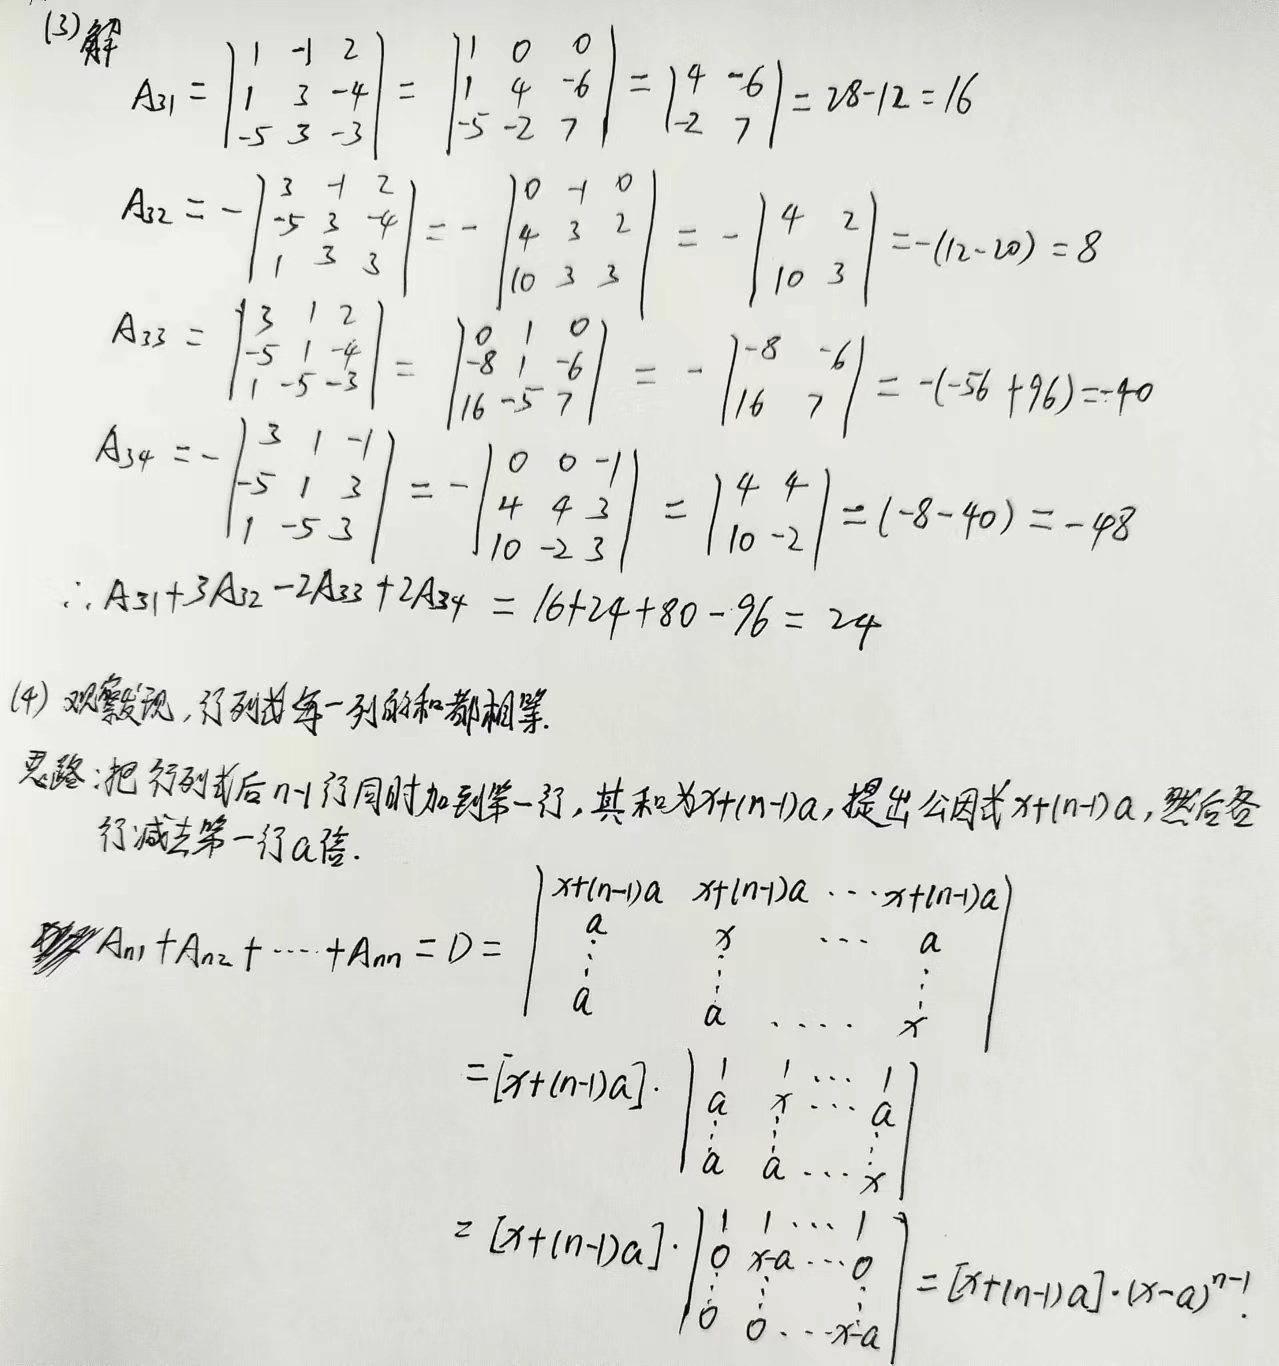 (3) 解
A₃₁ = |1 -1 2; 1 3 -4; -5 3 -3| = |1 0 0; 1 4 -6; -5 -2 7| = |4 -6; -2 7| = 28-12 = 16
A₃₂ = -|3 -1 2; -5 3 -4; 1 3 3| = -|0 -1 0; 4 3 2; 10 3 3| = -|4 2; 10 3| = -(12-20) = 8
A₃₃ = |3 1 2; -5 1 -4; 1 -5 -3| = |0 1 0; -8 1 -6; 16 -5 7| = -|-8 -6; 16 7| = -(-56+96) = -40
A₃₄ = -|3 1 -1; -5 1 3; 1 -5 3| = -|0 0 -1; 4 4 3; 10 -2 3| = |4 4; 10 -2| = (-8-40) = -48
∴ A₃₁+3A₃₂-2A₃₃+2A₃₄ = 16+24+80-96 = 24
(4) 观察发现,行列式每一列的和都相等.
思路:把行列式后n-1行同时加到第一行,其和为x+(n-1)a,提出公因式x+(n-1)a,然后各
行减去第一行a倍.
Aₙ₁+Aₙ₂+……+Aₙₙ = D = |x+(n-1)a x+(n-1)a … x+(n-1)a; a x … a; ⋮ ⋮ ⋮; a a …. x|
= [x+(n-1)a]·|1 1 … 1; a x … a; ⋮ ⋮ ⋮; a a … x|
= [x+(n-1)a]·|1 1 … 1; 0 x-a … 0; ⋮ ⋮ ⋮; 0 0 … x-a| = [x+(n-1)a]·(x-a)ⁿ⁻¹.